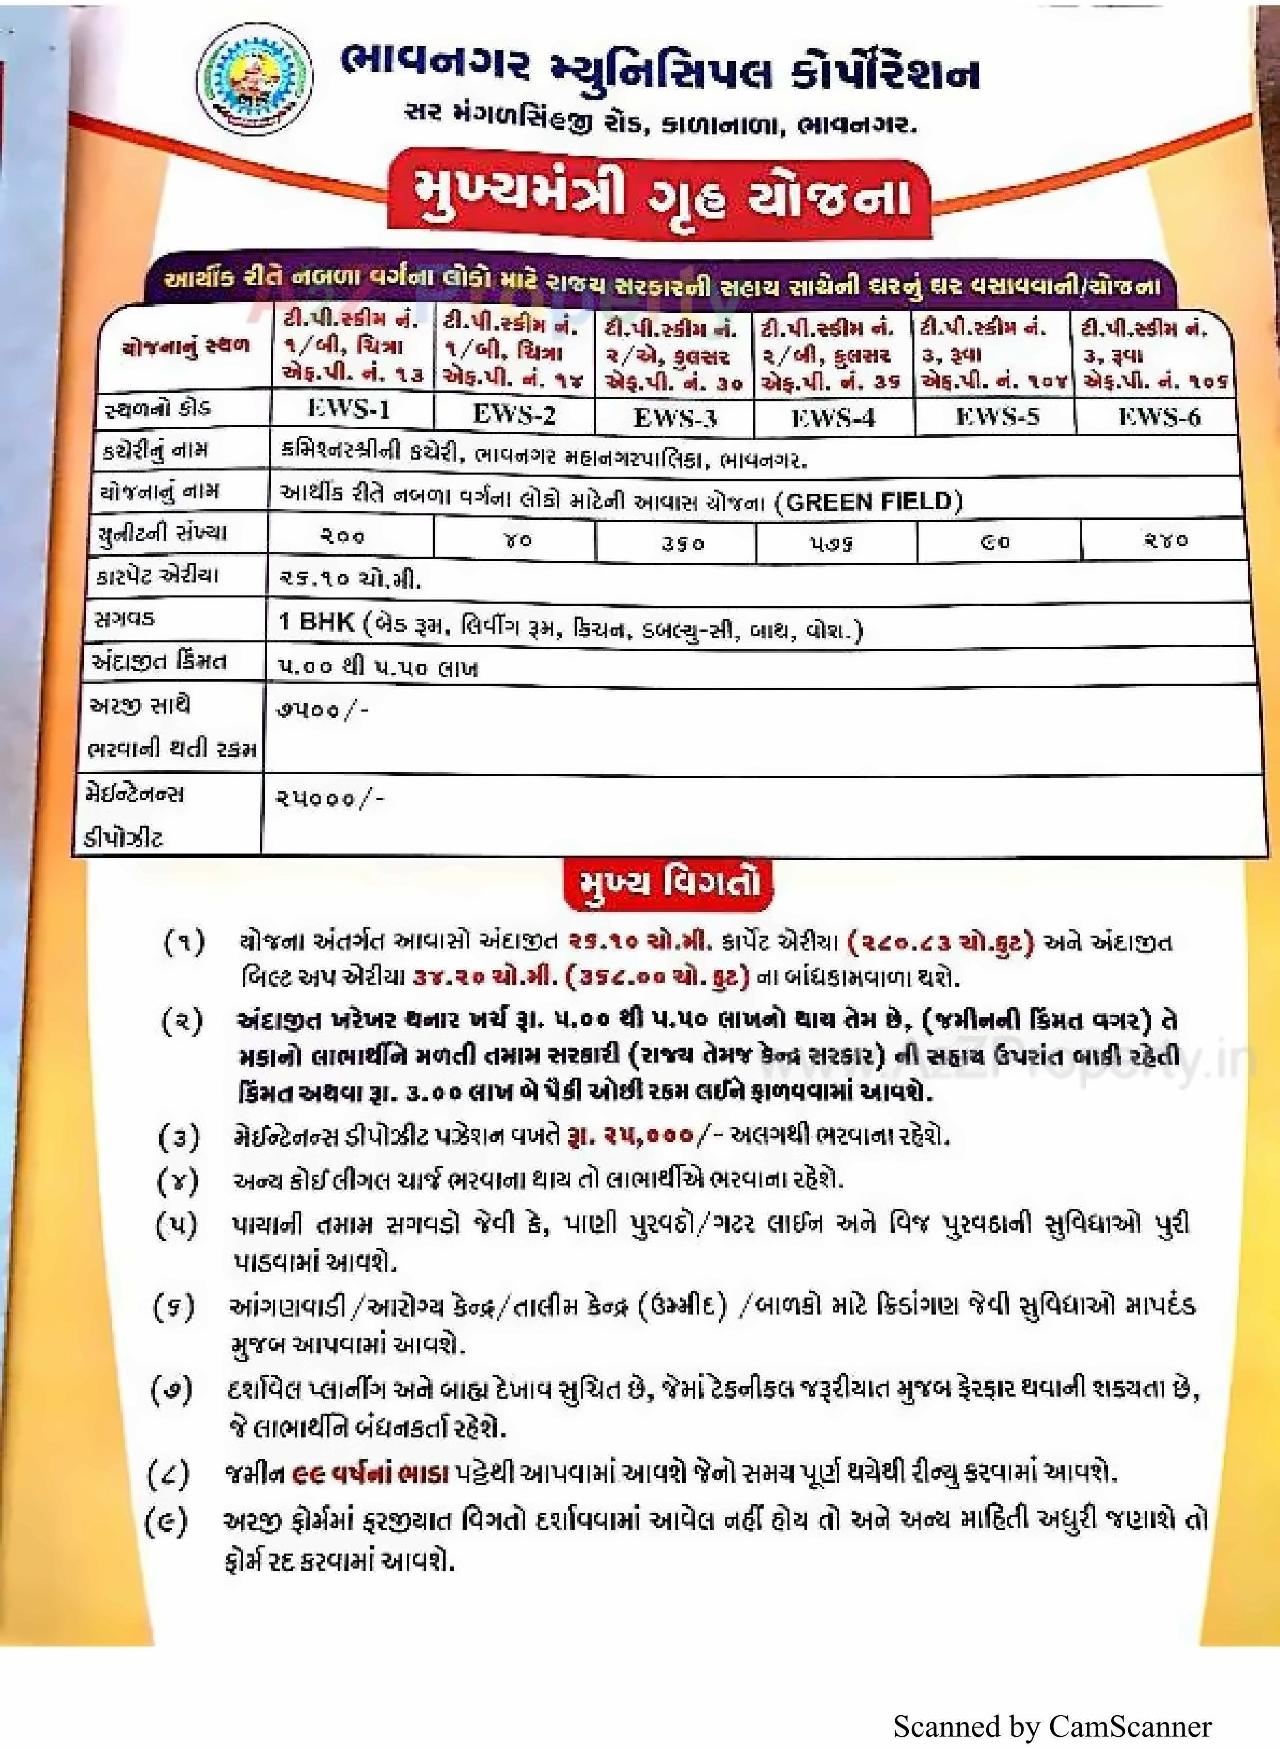 ભાવનગર મ્યુનિસિપલ કોર્પોરેશન
સર મંગળસિંહજી રોડ, કાળાનાળા, ભાવનગર.
મુખ્યમંત્રી ગૃહ યોજના
આર્થીક રીતે નબળા વર્ગના લોકો માટે રાજ્ય સરકારની સહાય સાથેની ઘરનું ઘર વસાવવાની યોજના
યોજનાનું સ્થળ ટી.પી.સ્કીમ નં. ૧/બી, ચિત્રા એફ.પી. નં. ૧૩ ટી.પી.સ્કીમ નં. ૧/બી, ચિત્રા એફ.પી. નં. ૧૪ ટી.પી.સ્કીમ નં. ૨/એ, ફુલસર એફ.પી. નં. ૩૦ ટી.પી.સ્કીમ નં. ૨/બી, ફુલસર એફ.પી. નં. ૩૬ ટી.પી.સ્કીમ નં. ૩, રૂવા એફ.પી. નં. ૧૦૪ ટી.પી.સ્કીમ નં. ૩, રૂવા એફ.પી. નં. ૧૦૬
સ્થળનો કોડ EWS-1 EWS-2 EWS-3 EWS-4 EWS-5 EWS-6
કચેરીનું નામ કમિશ્નરશ્રીની કચેરી, ભાવનગર મહાનગરપાલિકા, ભાવનગર.
યોજનાનું નામ આર્થીક રીતે નબળા વર્ગના લોકો માટેની આવાસ યોજના (GREEN FIELD)
યુનીટની સંખ્યા ૨૦૦ ૪૦ ૩૬૦ ૫૭૬ ૯૦ ૨૪૦
કારપેટ એરીયા ૨૬.૧૦ ચો.મી.
સગવડ 1 BHK (બેડ રૂમ, લિવીંગ રૂમ, કિચન, ડબલ્યુ-સી, બાથ, વોશ.)
અંદાજીત કિંમત ૫.૦૦ થી ૫.૫૦ લાખ
અરજી સાથે ૭૫૦૦/-
ભરવાની થતી રકમ
મેઈન્ટેનન્સ ૨૫૦૦૦/-
ડીપોઝીટ
મુખ્ય વિગતો
(૧) યોજના અંતર્ગત આવાસો અંદાજીત ૨૬.૧૦ ચો.મી. કાર્પેટ એરીયા (૨૮૦.૮૩ ચો.ફુટ) અને અંદાજીત
બિલ્ટ અપ એરીયા ૩૪.૨૦ ચો.મી. (૩૬૮.૦૦ ચો. ફુટ) ના બાંધકામવાળા થશે.
(૨) અંદાજીત ખરેખર થનાર ખર્ચ રૂા. ૫.૦૦ થી ૫.૫૦ લાખનો થાય તેમ છે, (જમીનની કિંમત વગર) તે
મકાનો લાભાર્થીને મળતી તમામ સરકારી (રાજ્ય તેમજ કેન્દ્ર સરકાર) ની સહાય ઉપરાંત બાકી રહેતી
કિંમત અથવા રૂા. ૩.૦૦ લાખ બે પૈકી ઓછી રકમ લઈને ફાળવવામાં આવશે.
(૩) મેઈન્ટેનન્સ ડીપોઝીટ પઝેશન વખતે રૂા. ૨૫,૦૦૦/- અલગથી ભરવાના રહેશે.
(૪) અન્ય કોઈ લીગલ ચાર્જ ભરવાના થાય તો લાભાર્થીએ ભરવાના રહેશે.
(૫) પાયાની તમામ સગવડો જેવી કે, પાણી પુરવઠો/ગટર લાઈન અને વિજ પુરવઠાની સુવિધાઓ પુરી
પાડવામાં આવશે.
(૬) આંગણવાડી/આરોગ્ય કેન્દ્ર/તાલીમ કેન્દ્ર (ઉમ્મીદ) /બાળકો માટે ક્રિડાંગણ જેવી સુવિધાઓ માપદંડ
મુજબ આપવામાં આવશે.
(૭) દર્શાવેલ પ્લાનીંગ અને બાહ્ય દેખાવ સુચિત છે, જેમાં ટેકનીકલ જરૂરીયાત મુજબ ફેરફાર થવાની શક્યતા છે,
જે લાભાર્થીને બંધનકર્તા રહેશે.
(૮) જમીન ૯૯ વર્ષનાં ભાડા પટ્ટેથી આપવામાં આવશે જેનો સમય પૂર્ણ થયેથી રીન્યુ કરવામાં આવશે.
(૯) અરજી ફોર્મમાં ફરજીયાત વિગતો દર્શાવવામાં આવેલ નહીં હોય તો અને અન્ય માહિતી અધુરી જણાશે તો
ફોર્મ રદ કરવામાં આવશે.
www.AzZProperty.in
Scanned by CamScanner